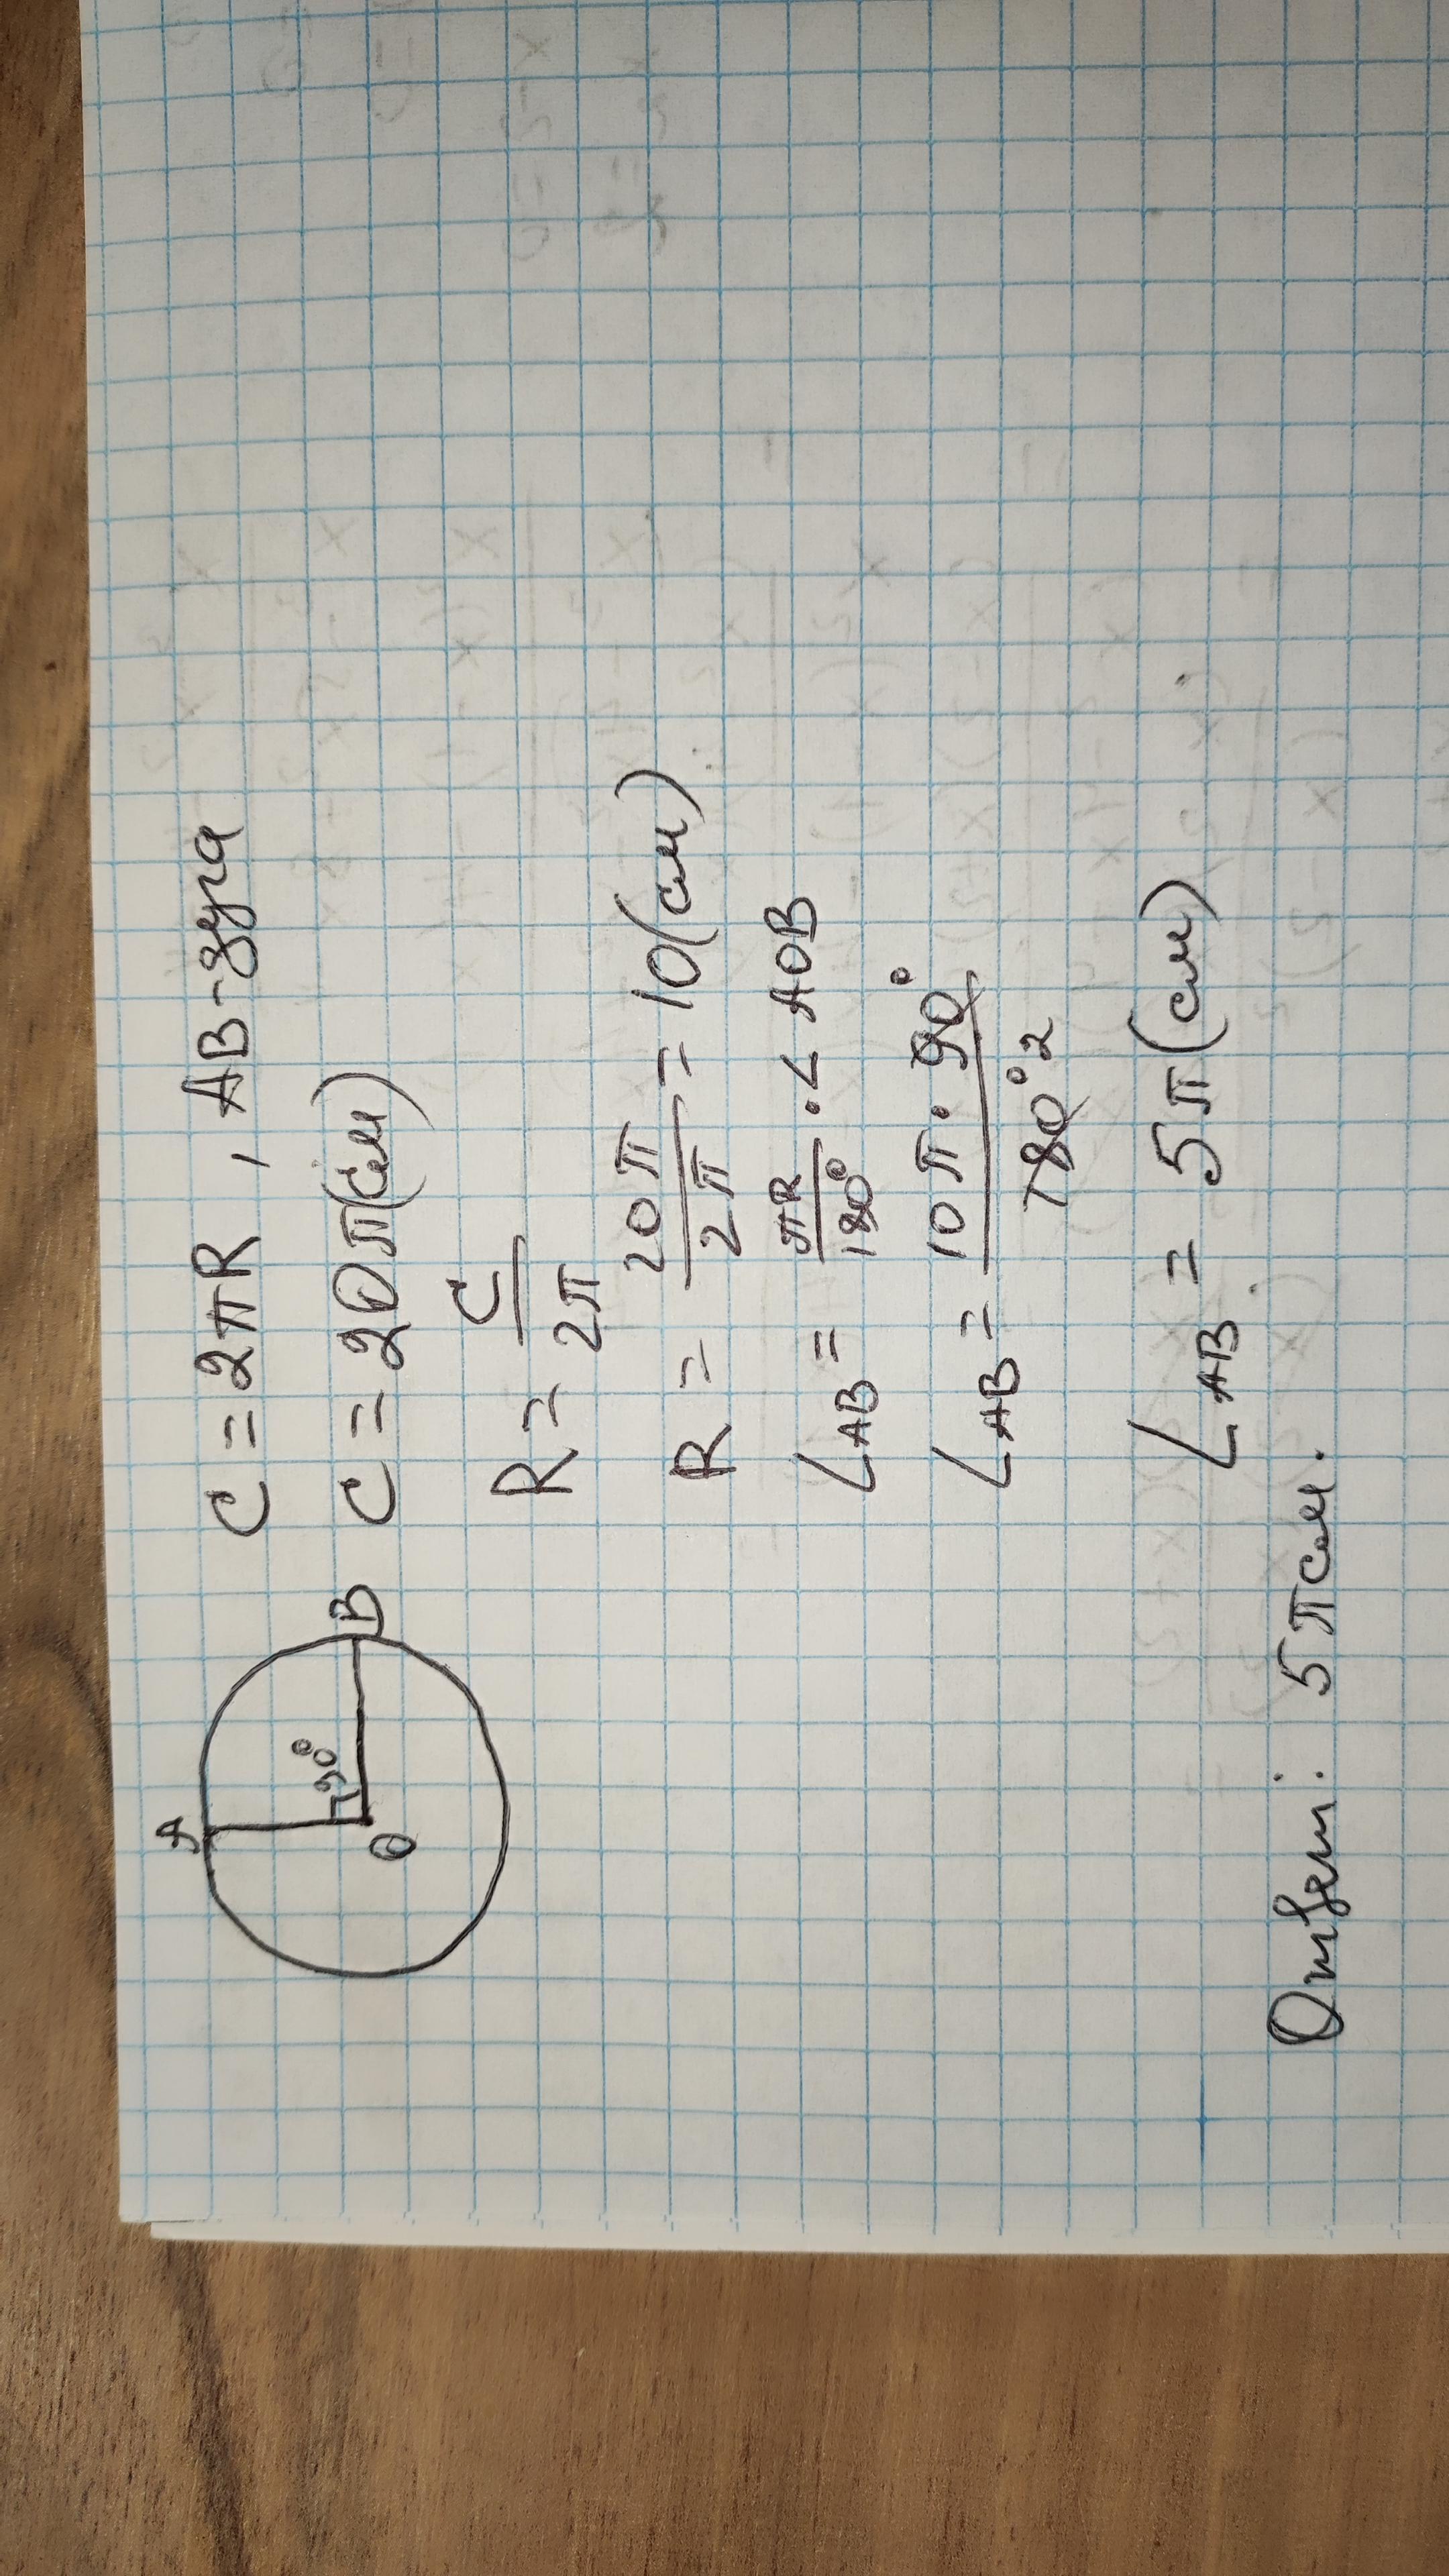 A
B
O
90°
C = 2πR , AB - дуга
C = 20π (см)
R = C / 2π
R = 20π / 2π = 10 (см)
L AB = πR / 180° · ∠ AOB
L AB = 10π · 90° / 180° 2
L AB = 5π (см)
Ответ: 5π см.